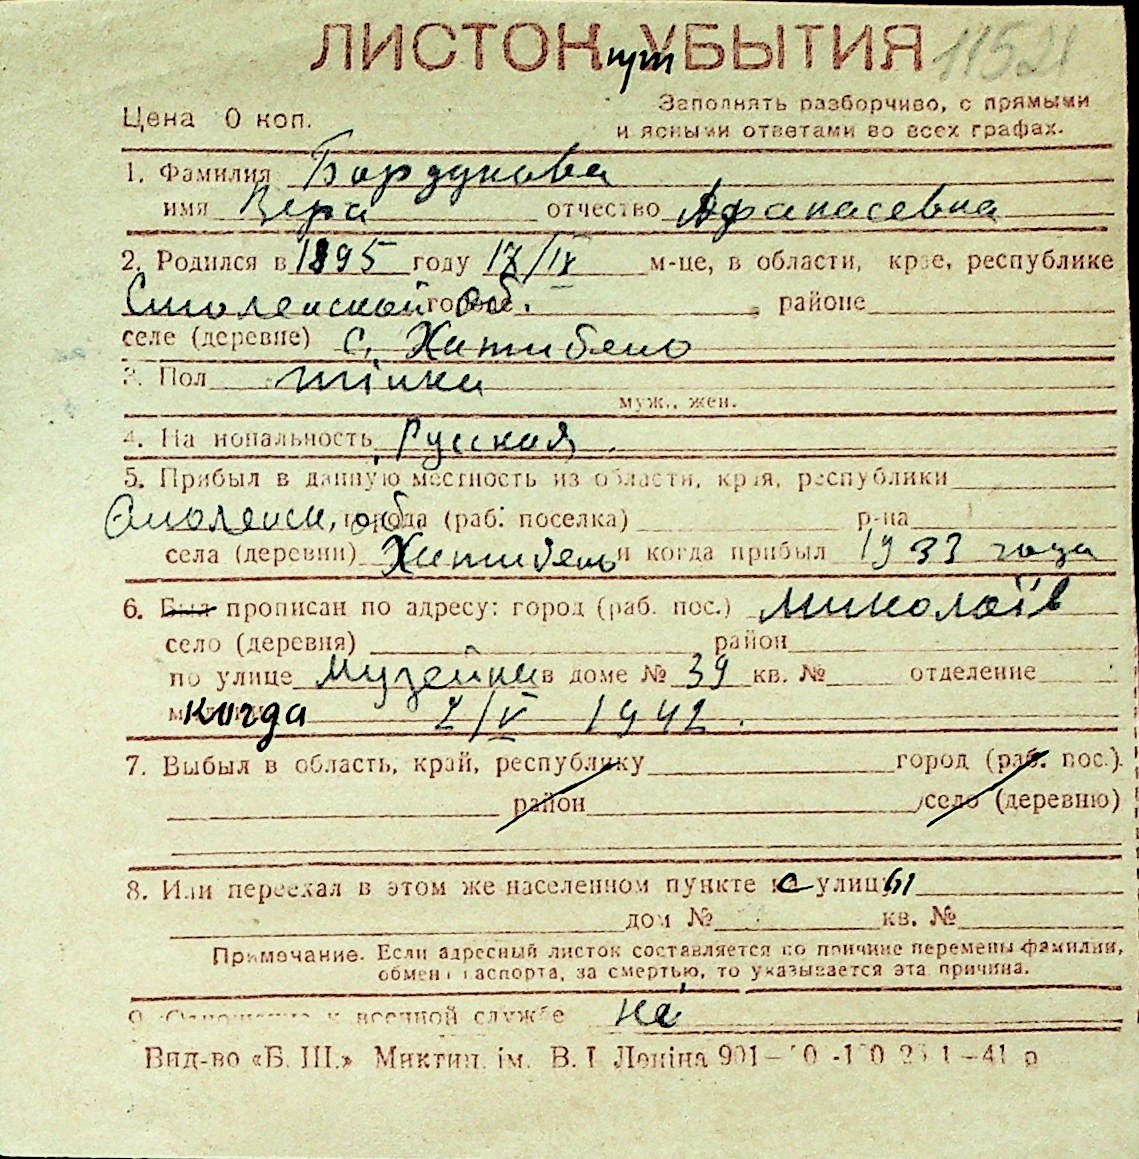 ЛИСТОК при УБЫТИЯ 11521
Цена 0 коп. Заполнять разборчиво, с прямыми
и ясными ответами во всех графах.
1. Фамилия Бардукова
имя Вера отчество Афанасевна
2. Родился в 1895 году 17/IX м-це, в области, крае, республике
Смоленской об. городе районе
селе (деревне) с. Хитибено
3. Пол жінка
муж., жен.
4. Национальность Русская
5. Прибыл в данную местность из области, края, республики
Смоленск, об. города (раб. поселка) р-на
села (деревни) и когда прибыл 1933 года
6. Был прописан по адресу: город (раб. пос.) Миколаїв
село (деревня) район
по улице Музейни в доме № 39 кв. № отделение
когда 2/V 1942.
7. Выбыл в область, край, республику город (раб. пос.)
район село (деревню)
8. Или переехал в этом же населенном пункте с улицы
дом № кв. №
Примечание. Если адресный листок составляется по причине перемены фамилии,
обмена паспорта, за смертью, то указывается эта причина.
9. Отношение к военной службе не
Вид-во «Б. Ш.» Миктип. ім. В. І Леніна 901 –41 р